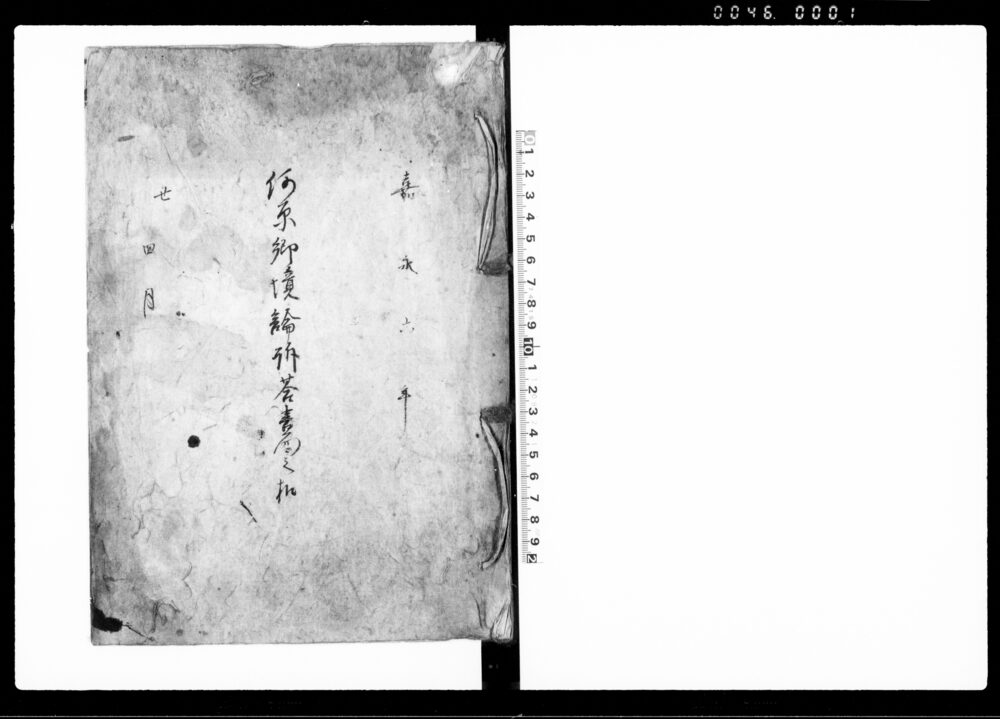 0046. 0001
嘉永六年
河原郷境論訴答書面之扣
丑四月
0 1 2 3 4 5 6 7 8 9 10 1 2 3 4 5 6 7 8 9 2